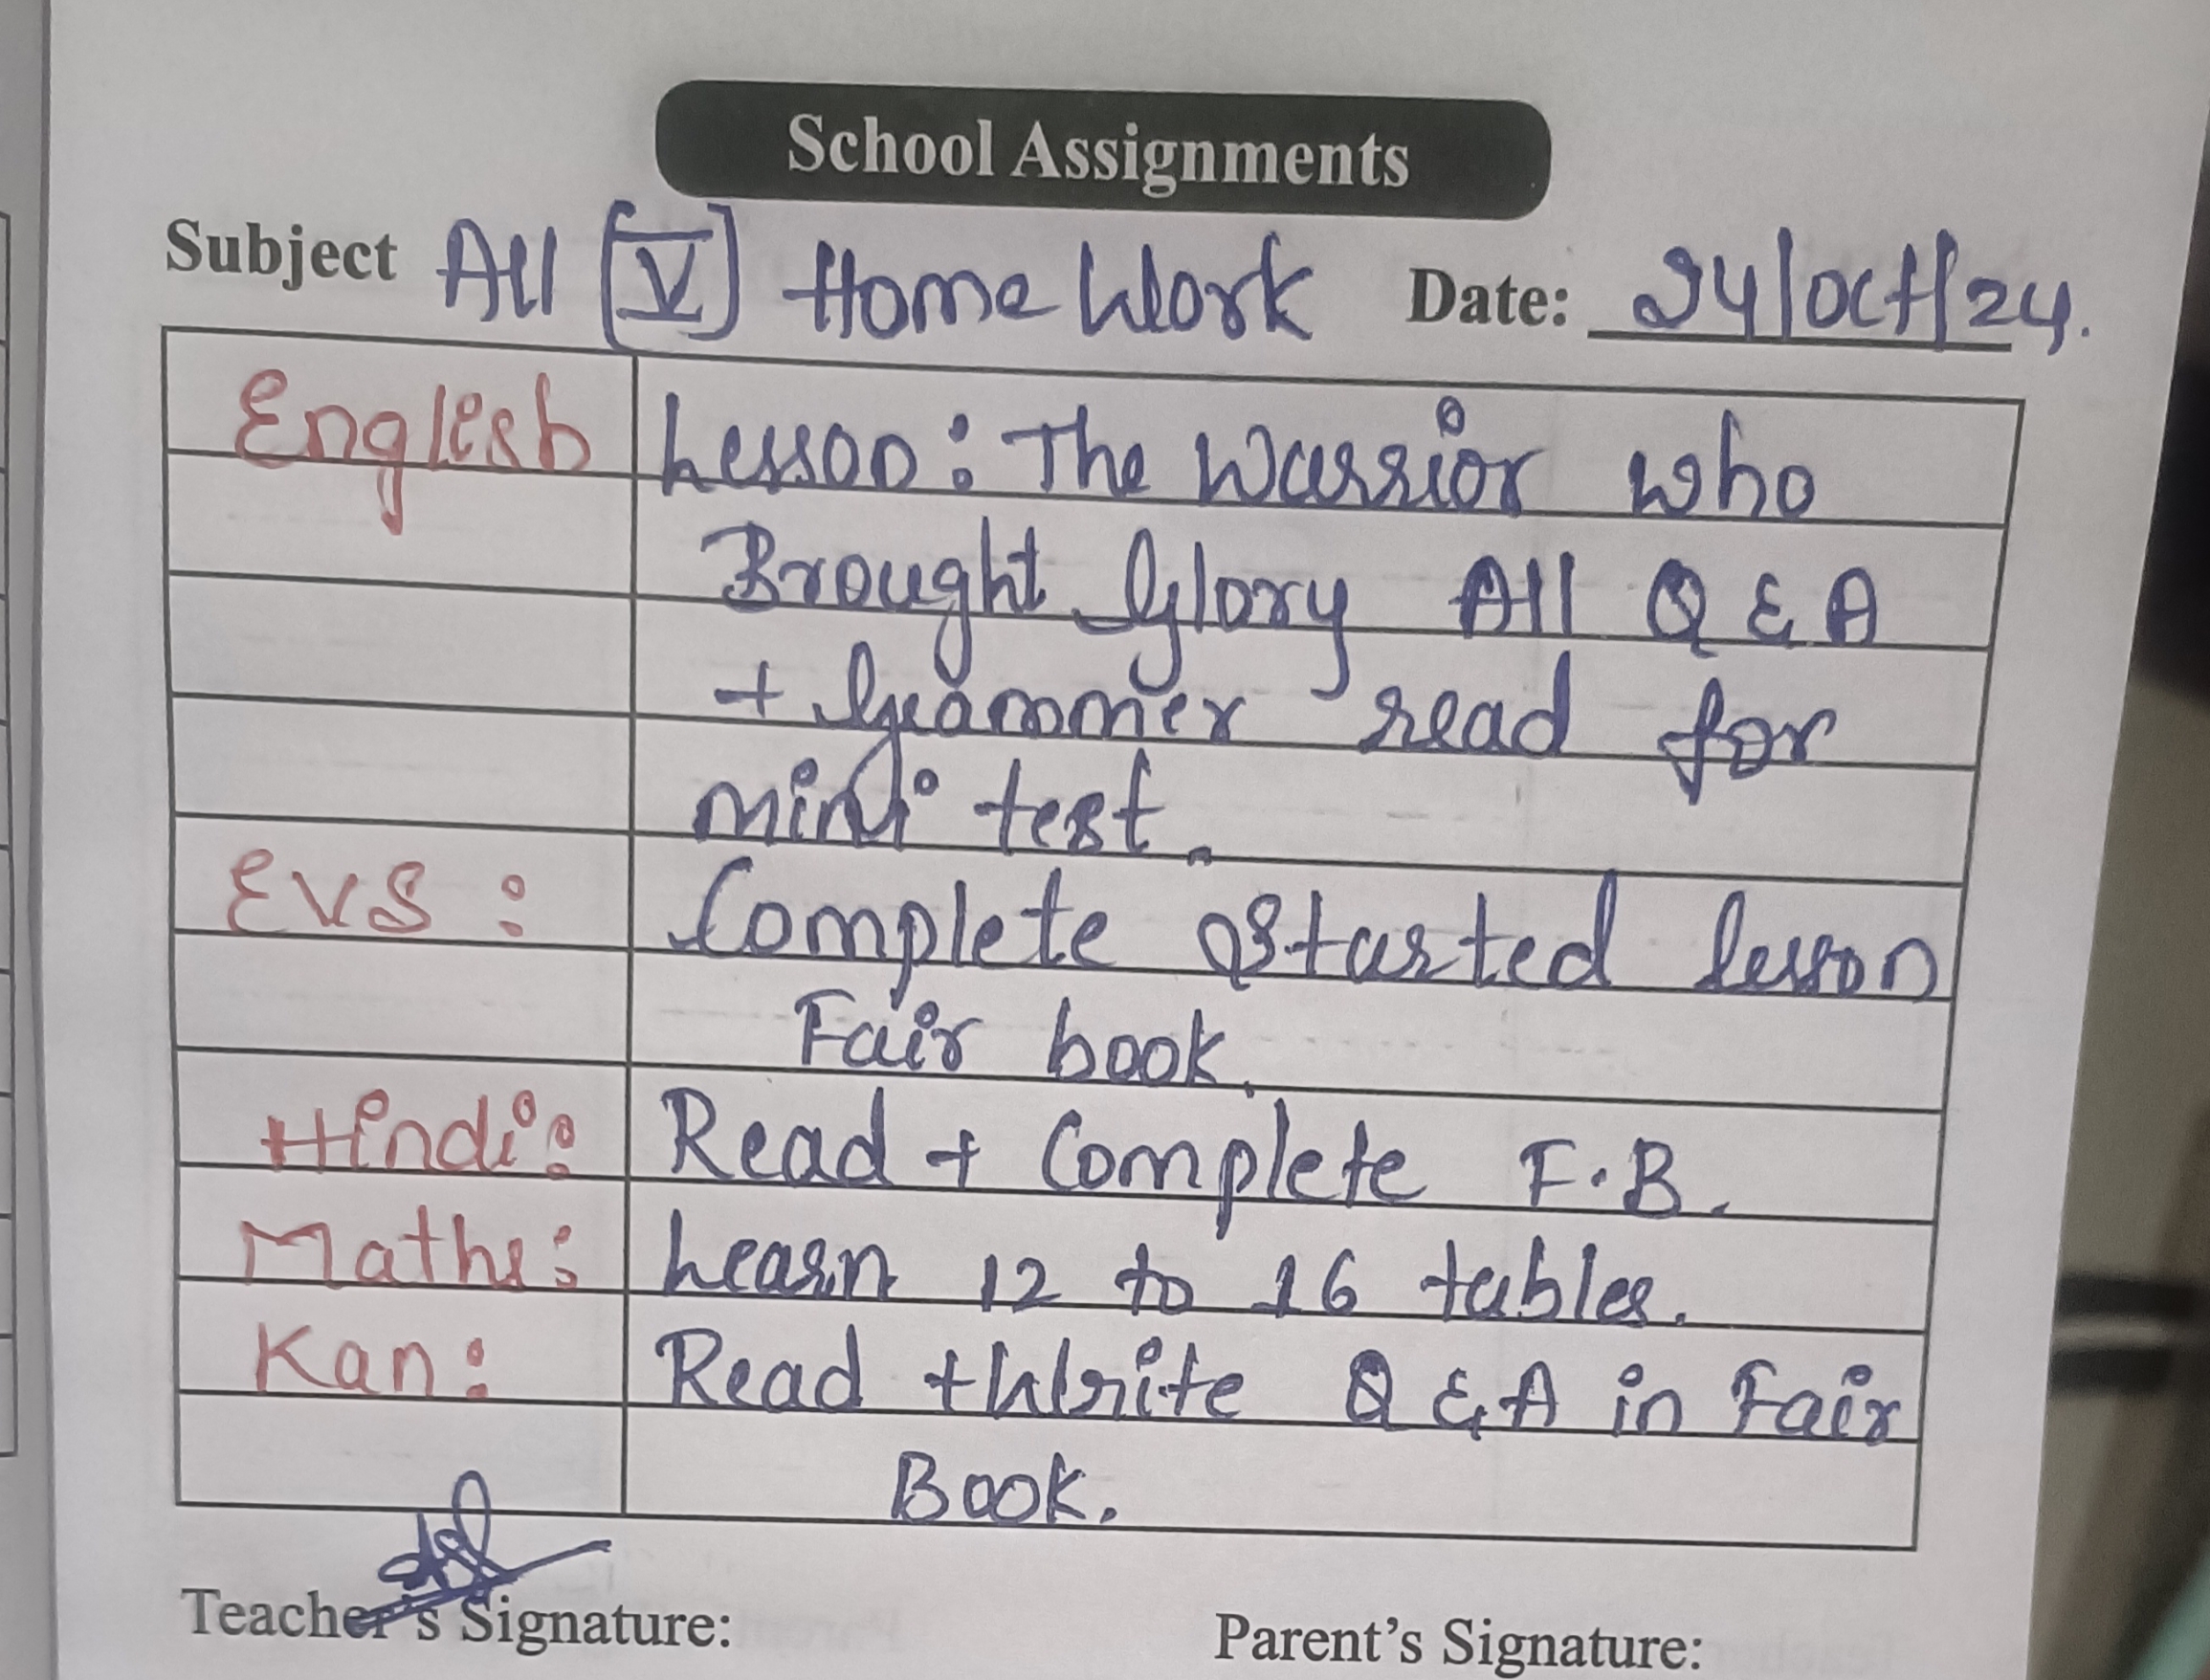 School Assignments
Subject All [V] Home Work Date: 24/Oct/24.
English Lesson: The Warrior who
Brought Glory All Q & A
+ Grammer read for
mini test.
EVS: Complete Started lesson
Fair book.
Hindi: Read + Complete F.B.
Maths: Learn 12 to 16 tables.
Kan: Read + Write Q & A in Fair
Book.
Teacher's Signature: Parent's Signature: